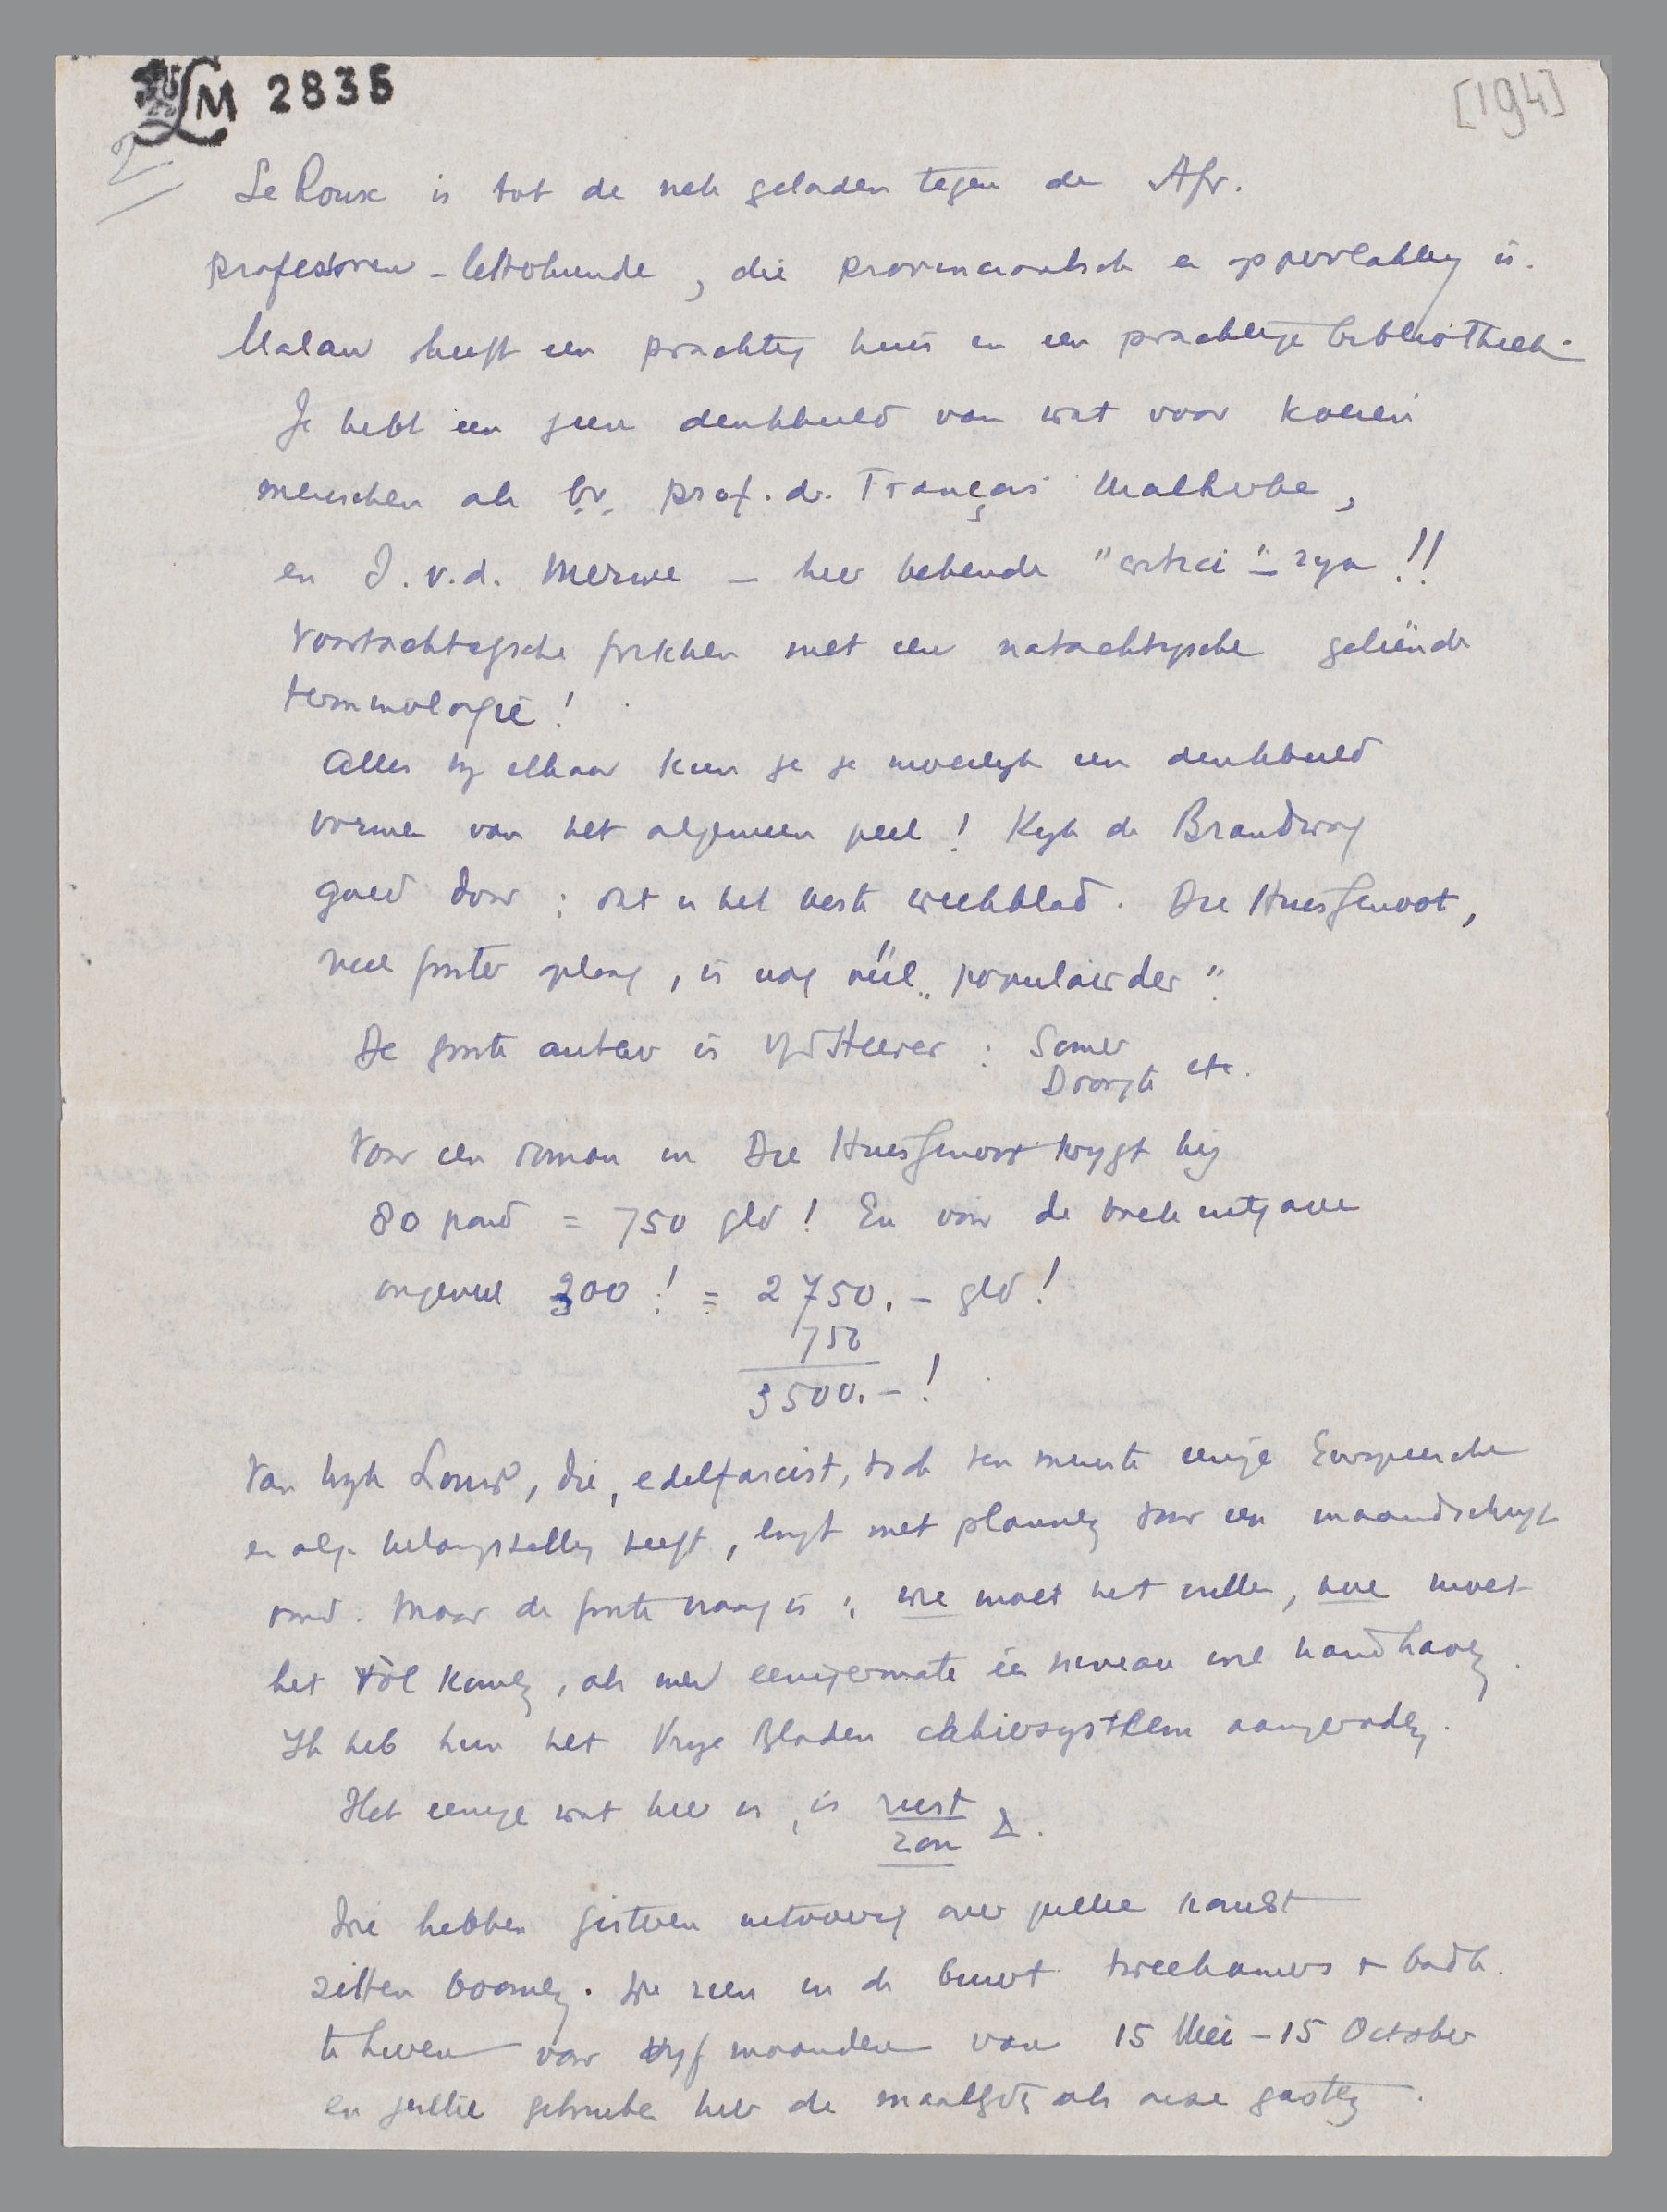 LM 2835
[194]
2
Le Roux is tot de nek geladen tegen de Afr.
professoren-letterkunde, die provincialistisch en oppervlakkig is.
Malan heeft een prachtig huis en een prachtige bibliotheek.
Je hebt een geen denkbeeld van wat voor koeien
menschen als bv. prof. dr. François Malherbe,
en J. v.d. Merwe – hier bekende "critici" – zyn!!
Voortachtigsche frikken met een natachtigsche geleende
terminologie!
Alles by elkaar kun je je moeilyk een denkbeeld
vormen van het algemeen peil! Kyk de Brandwag
goed door: dat is het beste weekblad. Die Huisgenoot,
veel groter oplaag, is nog véél "populairder".
De grote auteur is v/d Heever: Somer
Droogte etc.
Voor een roman in Die Huisgenoot krygt hij
80 pond = 750 gld! En voor de boekuitgave
ongeveer 300! = 2750.– gld!
750
3500.–!
Van Wyk Louw, die, edelfascist, toch ten minste eenige Europeesche
en alg. belangstelling heeft, loopt met plannen voor een maandschrift
rond. Maar de grote vraag is: wie moet het vullen, hoe moet
het vol komen, als men eenigermate een niveau wil handhaven.
Ik heb hun het Vrye Bladen cahiersysteem aangeraden.
Het eenige wat hier is, is rust
zon &.
We hebben gisteren uitvoerig over jullie komst
zitten boomen. We zien in de buurt twee kamers + badk.
te huren voor vyf maanden van 15 Mei – 15 October
en jullie gebruiken hier de maaltyden als onze gasten.